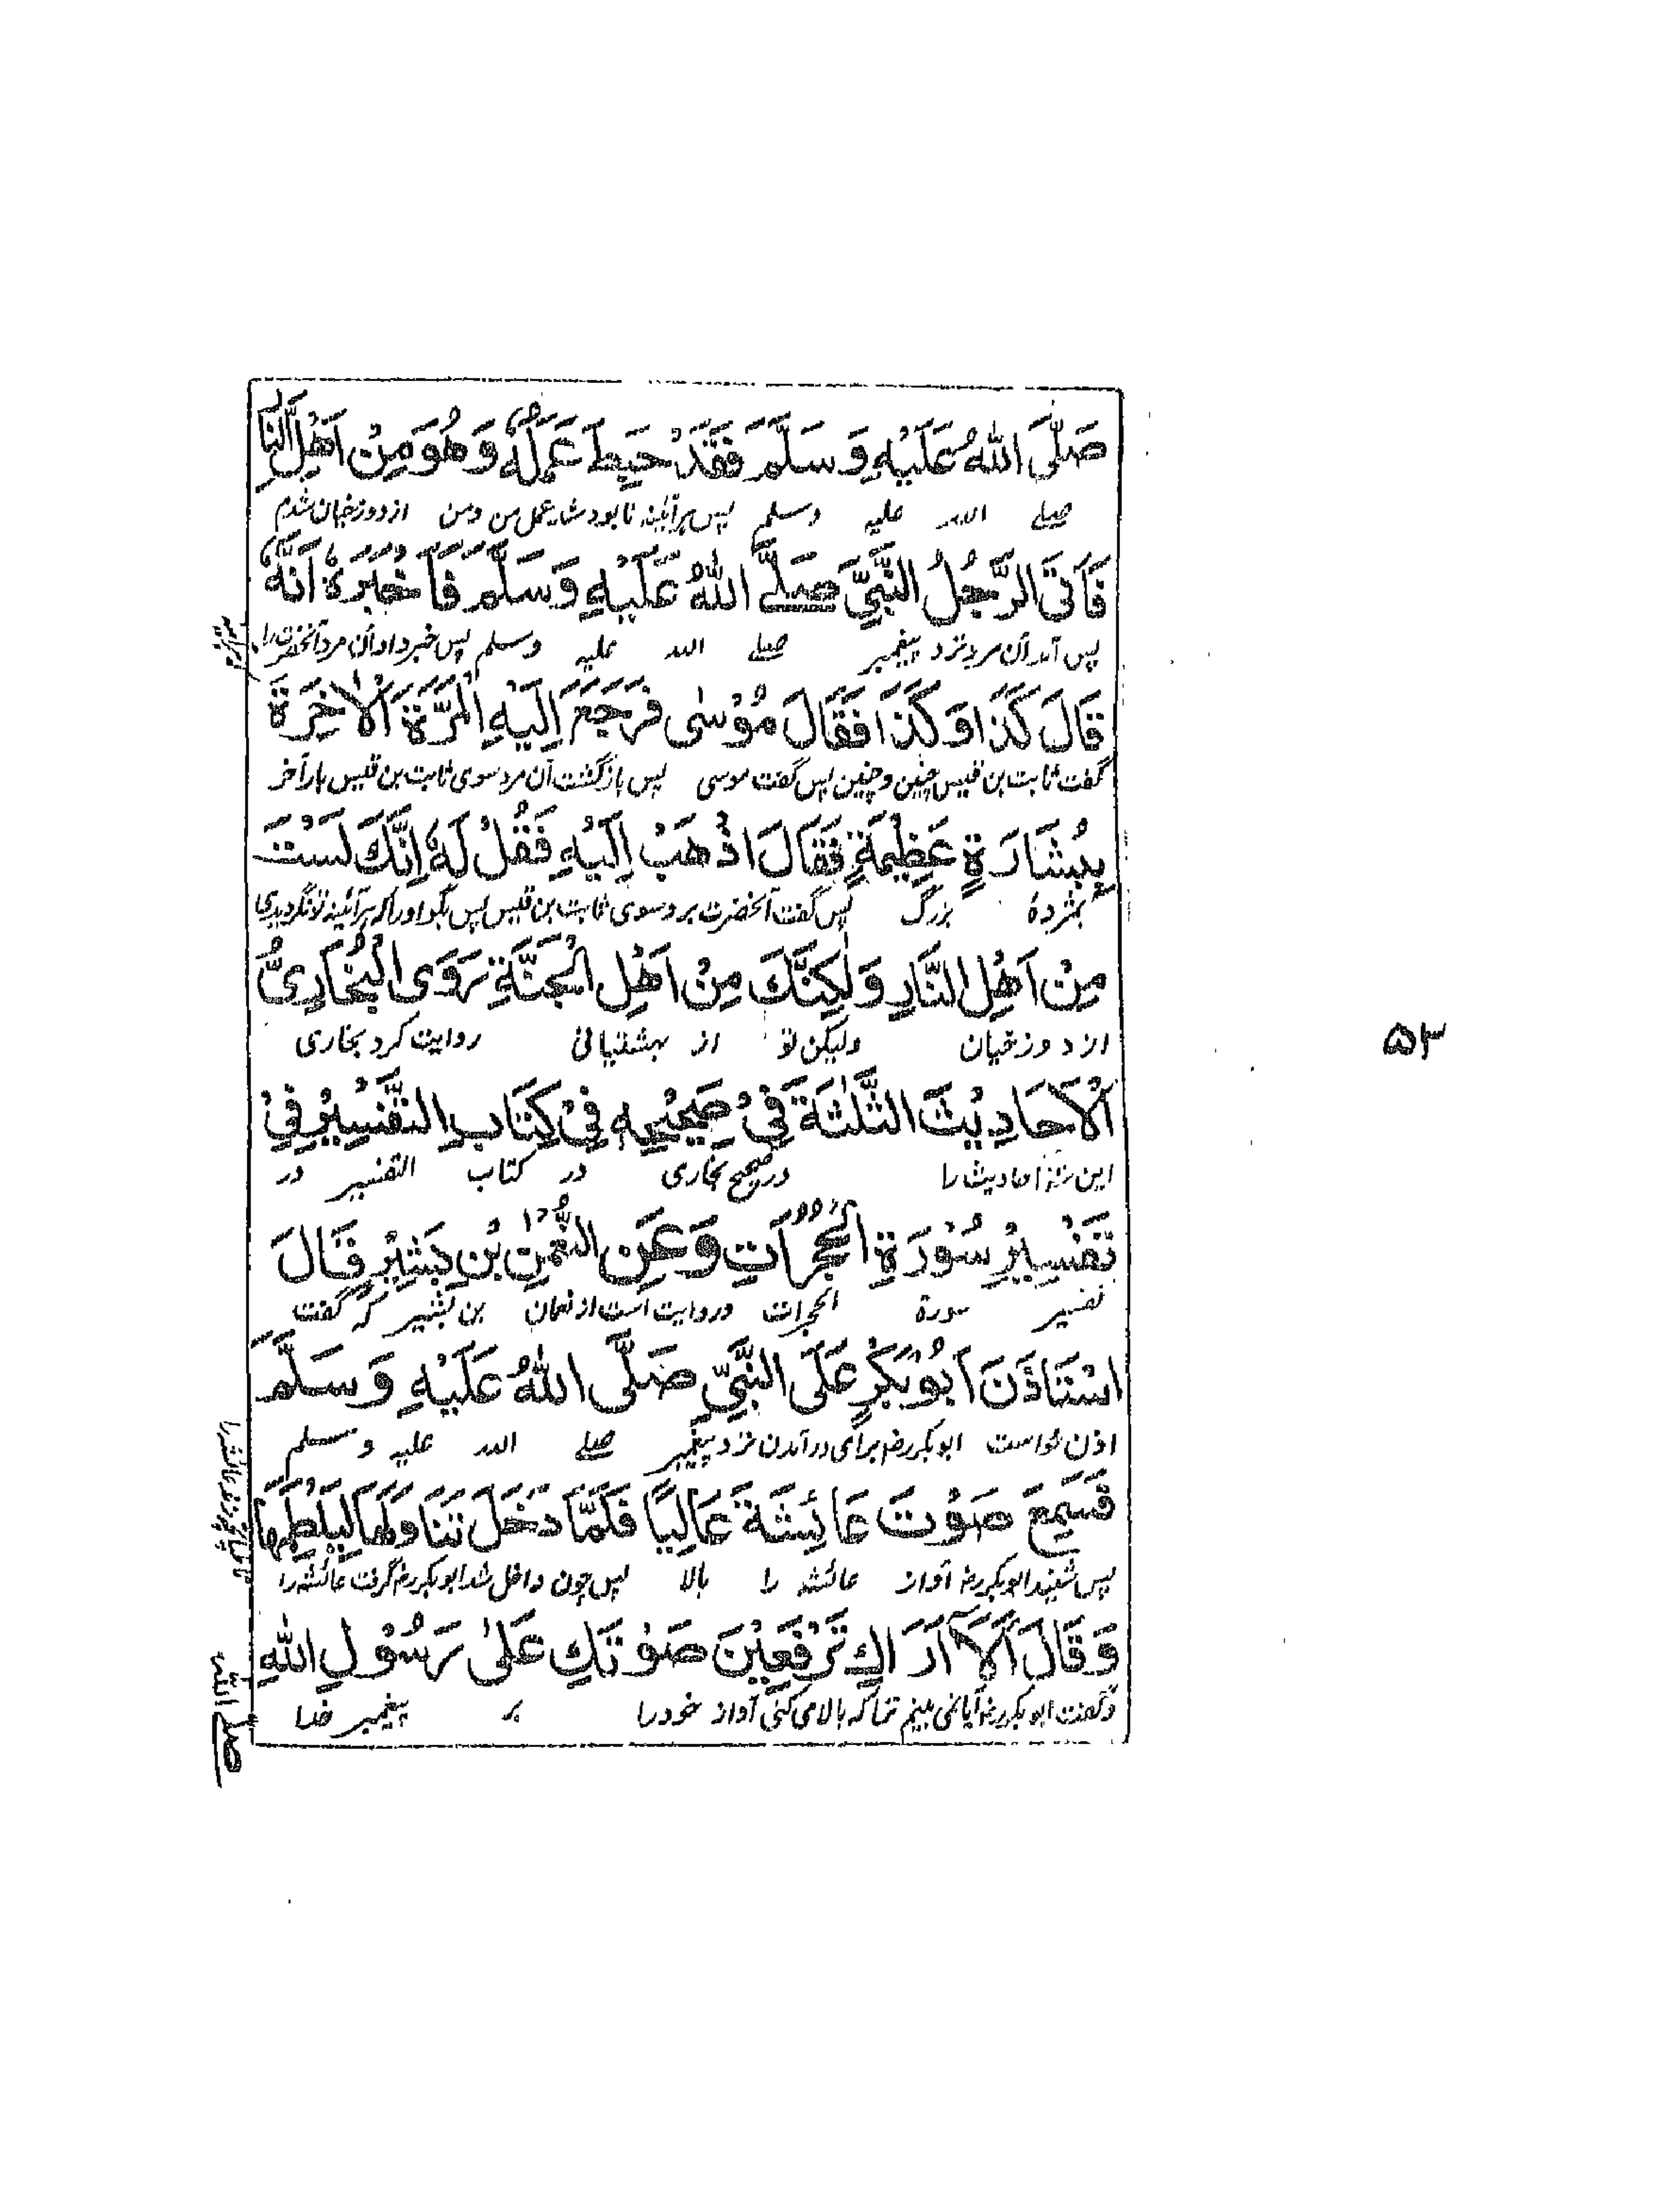 صَلَّى اللهُ عَلَيْهِ وَسَلَّمَ فَقَدْ حَبِطَ عَمَلُهٗ وَهُوَ مِنْ اَهْلِ النَّارِ
صلے اللہ علیہ وسلم پس ہرآئینہ نابود شد عمل من ومن از دوزخیان شدم
فَاَتَى الرَّجُلُ النَّبِيَّ صَلَّى اللهُ عَلَيْهِ وَسَلَّمَ فَاَخْبَرَهٗ اَنَّهٗ
پس آمد آن مرد نزد پیغمبر صلے اللہ علیہ وسلم پس خبر داد آن مرد آنحضرت را
قَالَ كَذَا وَكَذَا فَقَالَ مُوْسٰى فَرَجَعَ اِلَيْهِ الْمَرَّةَ الْاٰخِرَةَ
گفت ثابت بن قیس چنین وچنین پس گفت موسی پس بازگشت آن مرد سوی ثابت بن قیس بار آخر
بِبُشَارَةٍ عَظِيْمَةٍ فَقَالَ اذْهَبْ اِلَيْهِ فَقُلْ لَهٗ اِنَّكَ لَسْتَ
بمژدۂ بزرگ پس گفت آنحضرت برو سوی ثابت بن قیس پس بگو اورا کہ ہرآئینہ تو نگردیدی
مِنْ اَهْلِ النَّارِ وَلٰكِنَّكَ مِنْ اَهْلِ الْجَنَّةِ رَوَى الْبُخَارِيُّ
از دوزخیان ولیکن تو از بہشتیانی روایت کرد بخاری
۵۳
الْاَحَادِيْثَ الثَّلٰثَةَ فِيْ صَحِيْحِهٖ فِيْ كِتَابِ التَّفْسِيْرِ فِيْ
این احادیث را در صحیح بخاری در کتاب التفسیر در
تَفْسِيْرِ سُوْرَةِ الْحُجُرَاتِ وَعَنِ النُّعْمٰنِ بْنِ بَشِيْرٍ قَالَ
تفسیر سورۃ الحجرات وروایت است از نعمان بن بشیر کہ گفت
اسْتَاذَنَ اَبُوْبَكْرٍ عَلَى النَّبِيِّ صَلَّى اللهُ عَلَيْهِ وَسَلَّمَ
اذن خواست ابوبکررض برای درآمدن نزد پیغمبر صلے اللہ علیہ وسلم
فَسَمِعَ صَوْتَ عَائِشَةَ عَالِيًا فَلَمَّا دَخَلَ تَنَاوَلَهَا لِيَلْطِمَهَا
پس شنید ابوبکررض آواز عائشہ را بالا پس چون داخل شد ابوبکررض گرفت عائشہ را
وَقَالَ اَلَا اَرَاكِ تَرْفَعِيْنَ صَوْتَكِ عَلٰى رَسُوْلِ اللهِ
وگفت ابوبکررض آیا نمی بینم ترا کہ بالا می کنی آواز خود را بر پیغمبر خدا
صلے اللہ